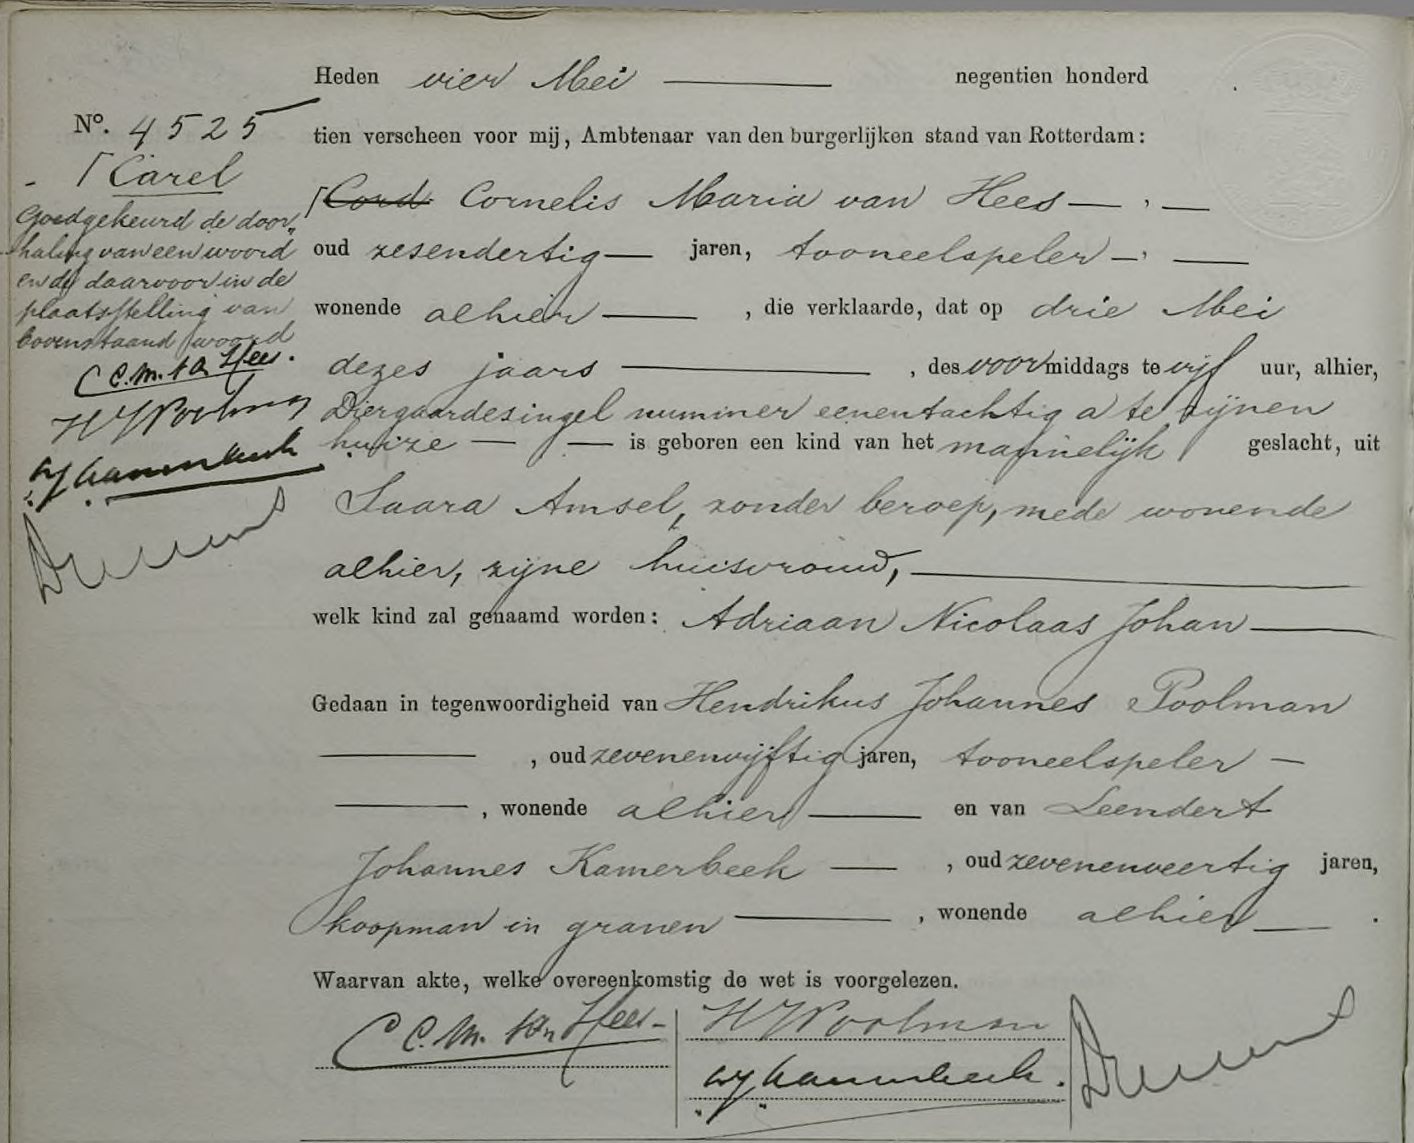 Heden vier Mei negentien honderd
No. 4525
tien verscheen voor mij, Ambtenaar van den burgerlijken stand van Rotterdam:
Carel
Cord Cornelis Maria van Hees
Goedgekeurd de door„
haling van een woord
en de daarvoor in de
plaatsstelling van
bovenstaand woord
C.C.M. van Hees.
HJ Poolman
LJ Kamerbeek
oud zesendertig jaren, tooneelspeler
wonende alhier, die verklaarde, dat op drie Mei
dezes jaars, des voormiddags te vijf uur, alhier,
Diergaardesingel nummer eenentachtig a te zijnen
huize is geboren een kind van het mannelijk geslacht, uit
Saara Amsel, zonder beroep, mede wonende
alhier, zijne huisvrouw,
welk kind zal genaamd worden: Adriaan Nicolaas Johan
Gedaan in tegenwoordigheid van Hendrikus Johannes Poolman
, oud zevenenvijftig jaren, tooneelspeler
, wonende alhier en van Leendert
Johannes Kamerbeek, oud zevenenveertig jaren,
koopman in granen, wonende alhier.
Waarvan akte, welke overeenkomstig de wet is voorgelezen.
C.C.M. van Hees
HJ Poolman
LJ Kamerbeek.